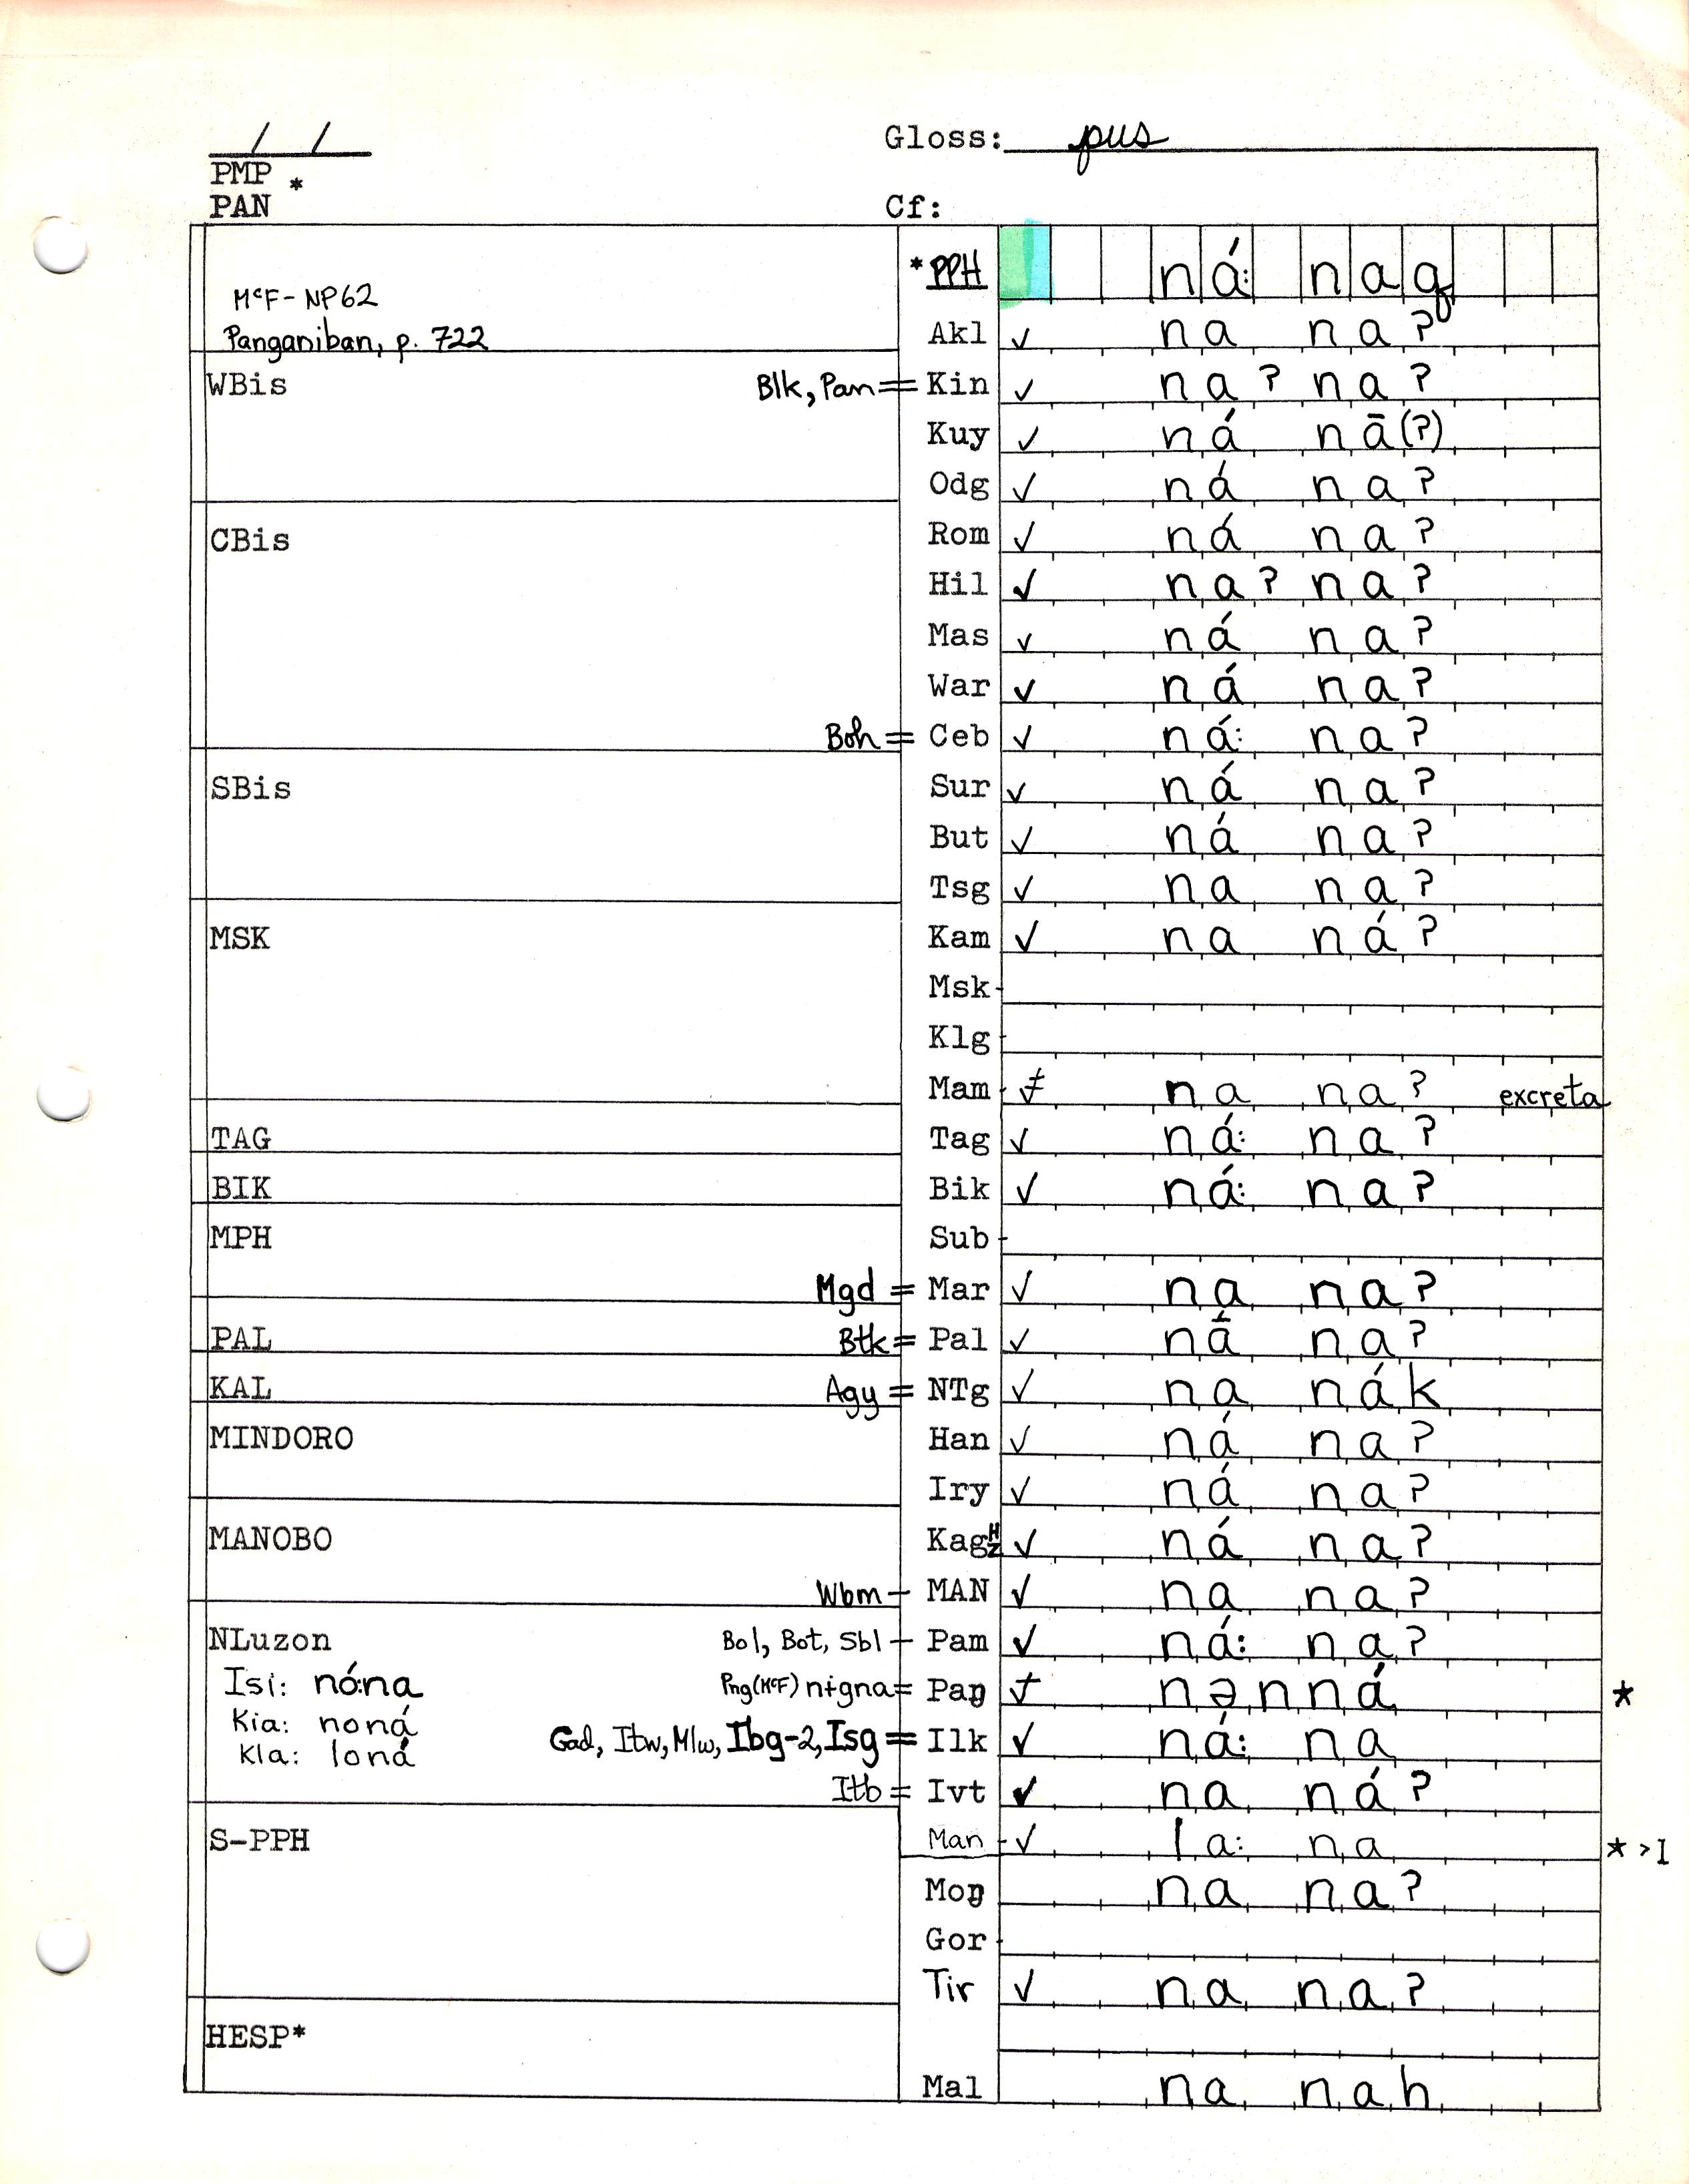 / /
Gloss: pus
PMP *
PAN
Cf:
*PPH ná: naq
McF - NP62
Panganiban, p. 722
Akl ✓ na na?
WBis Blk, Pan = Kin ✓ na? na?
Kuy ✓ ná nā(?)
Odg ✓ ná na?
CBis Rom ✓ ná na?
Hil ✓ na? na?
Mas ✓ ná na?
War ✓ ná na?
Boh = Ceb ✓ ná: na?
SBis Sur ✓ ná na?
But ✓ ná na?
Tsg ✓ na na?
MSK Kam ✓ na ná?
Msk -
Klg -
Mam - ≠ na na? excreta
TAG Tag ✓ ná: na?
BIK Bik ✓ ná: na?
MPH Sub -
Mgd = Mar ✓ na na?
PAL Btk = Pal ✓ nā́ na?
KAL Agy = NTg ✓ na nák
MINDORO Han ✓ ná na?
Iry ✓ ná na?
MANOBO Kag H Z ✓ ná na?
Wbm - MAN ✓ na na?
NLuzon Bol, Bot, Sbl - Pam ✓ ná: na?
Isi: nó:na Png(McF) nɨgna = Paŋ nənná *
Kia: noná
Gad, Itw, Mlw, Ibg-2, Isg = Ilk ✓ ná: na
Kla: loná
Itb = Ivt ✓ na ná?
S-PPH Man - ✓ la: na * > l
Moŋ na na?
Gor -
Tir ✓ na na?
HESP*
Mal na nah